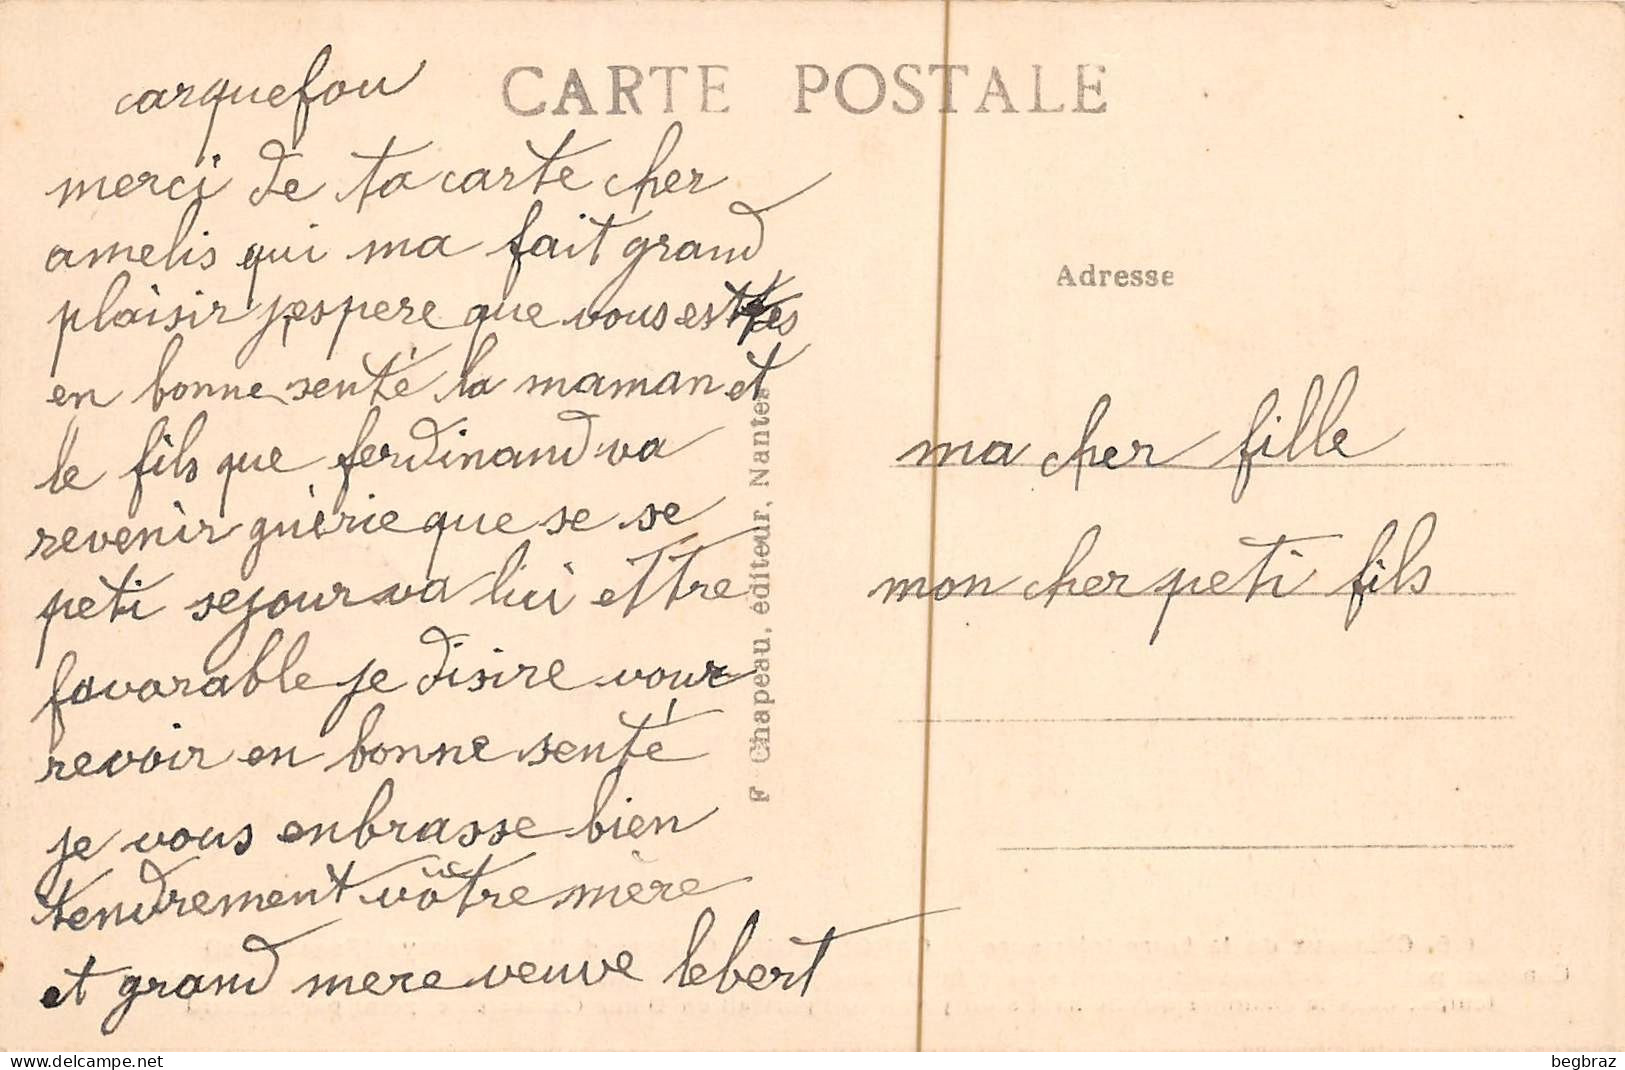 CARTE POSTALE
carquefou
merci de ta carte cher
amelis qui ma fait grand
plaisir jespere que vous
en bonne senté la maman et
le fils que ferdinand va
revenir guérie que se se
peti sejour va lui ettre
favorable je disire vour
revoir en bonne senté
je vous enbrasse bien
tendrement vôtre mère
et grand mere veuve lebert
F. Chapeau, éditeur, Nantes
Adresse
ma cher fille
mon cher peti fils
delcampe.net
begbraz